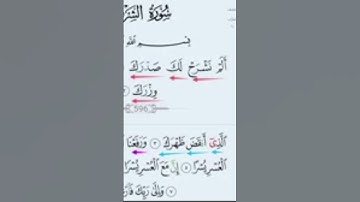 سُورَةُ الشَّرْ
بِسْمِ اللَّهِ
أَلَمْ نَشْرَحْ لَكَ صَدْرَكَ
وِزْرَكَ
الَّذِي أَنقَضَ ظَهْرَكَ ٣ وَرَفَعْنَا
الْعُسْرِ يُسْرًا ٥ إِنَّ مَعَ الْعُسْرِ يُسْرًا
٧ وَإِلَىٰ رَبِّكَ فَارْ